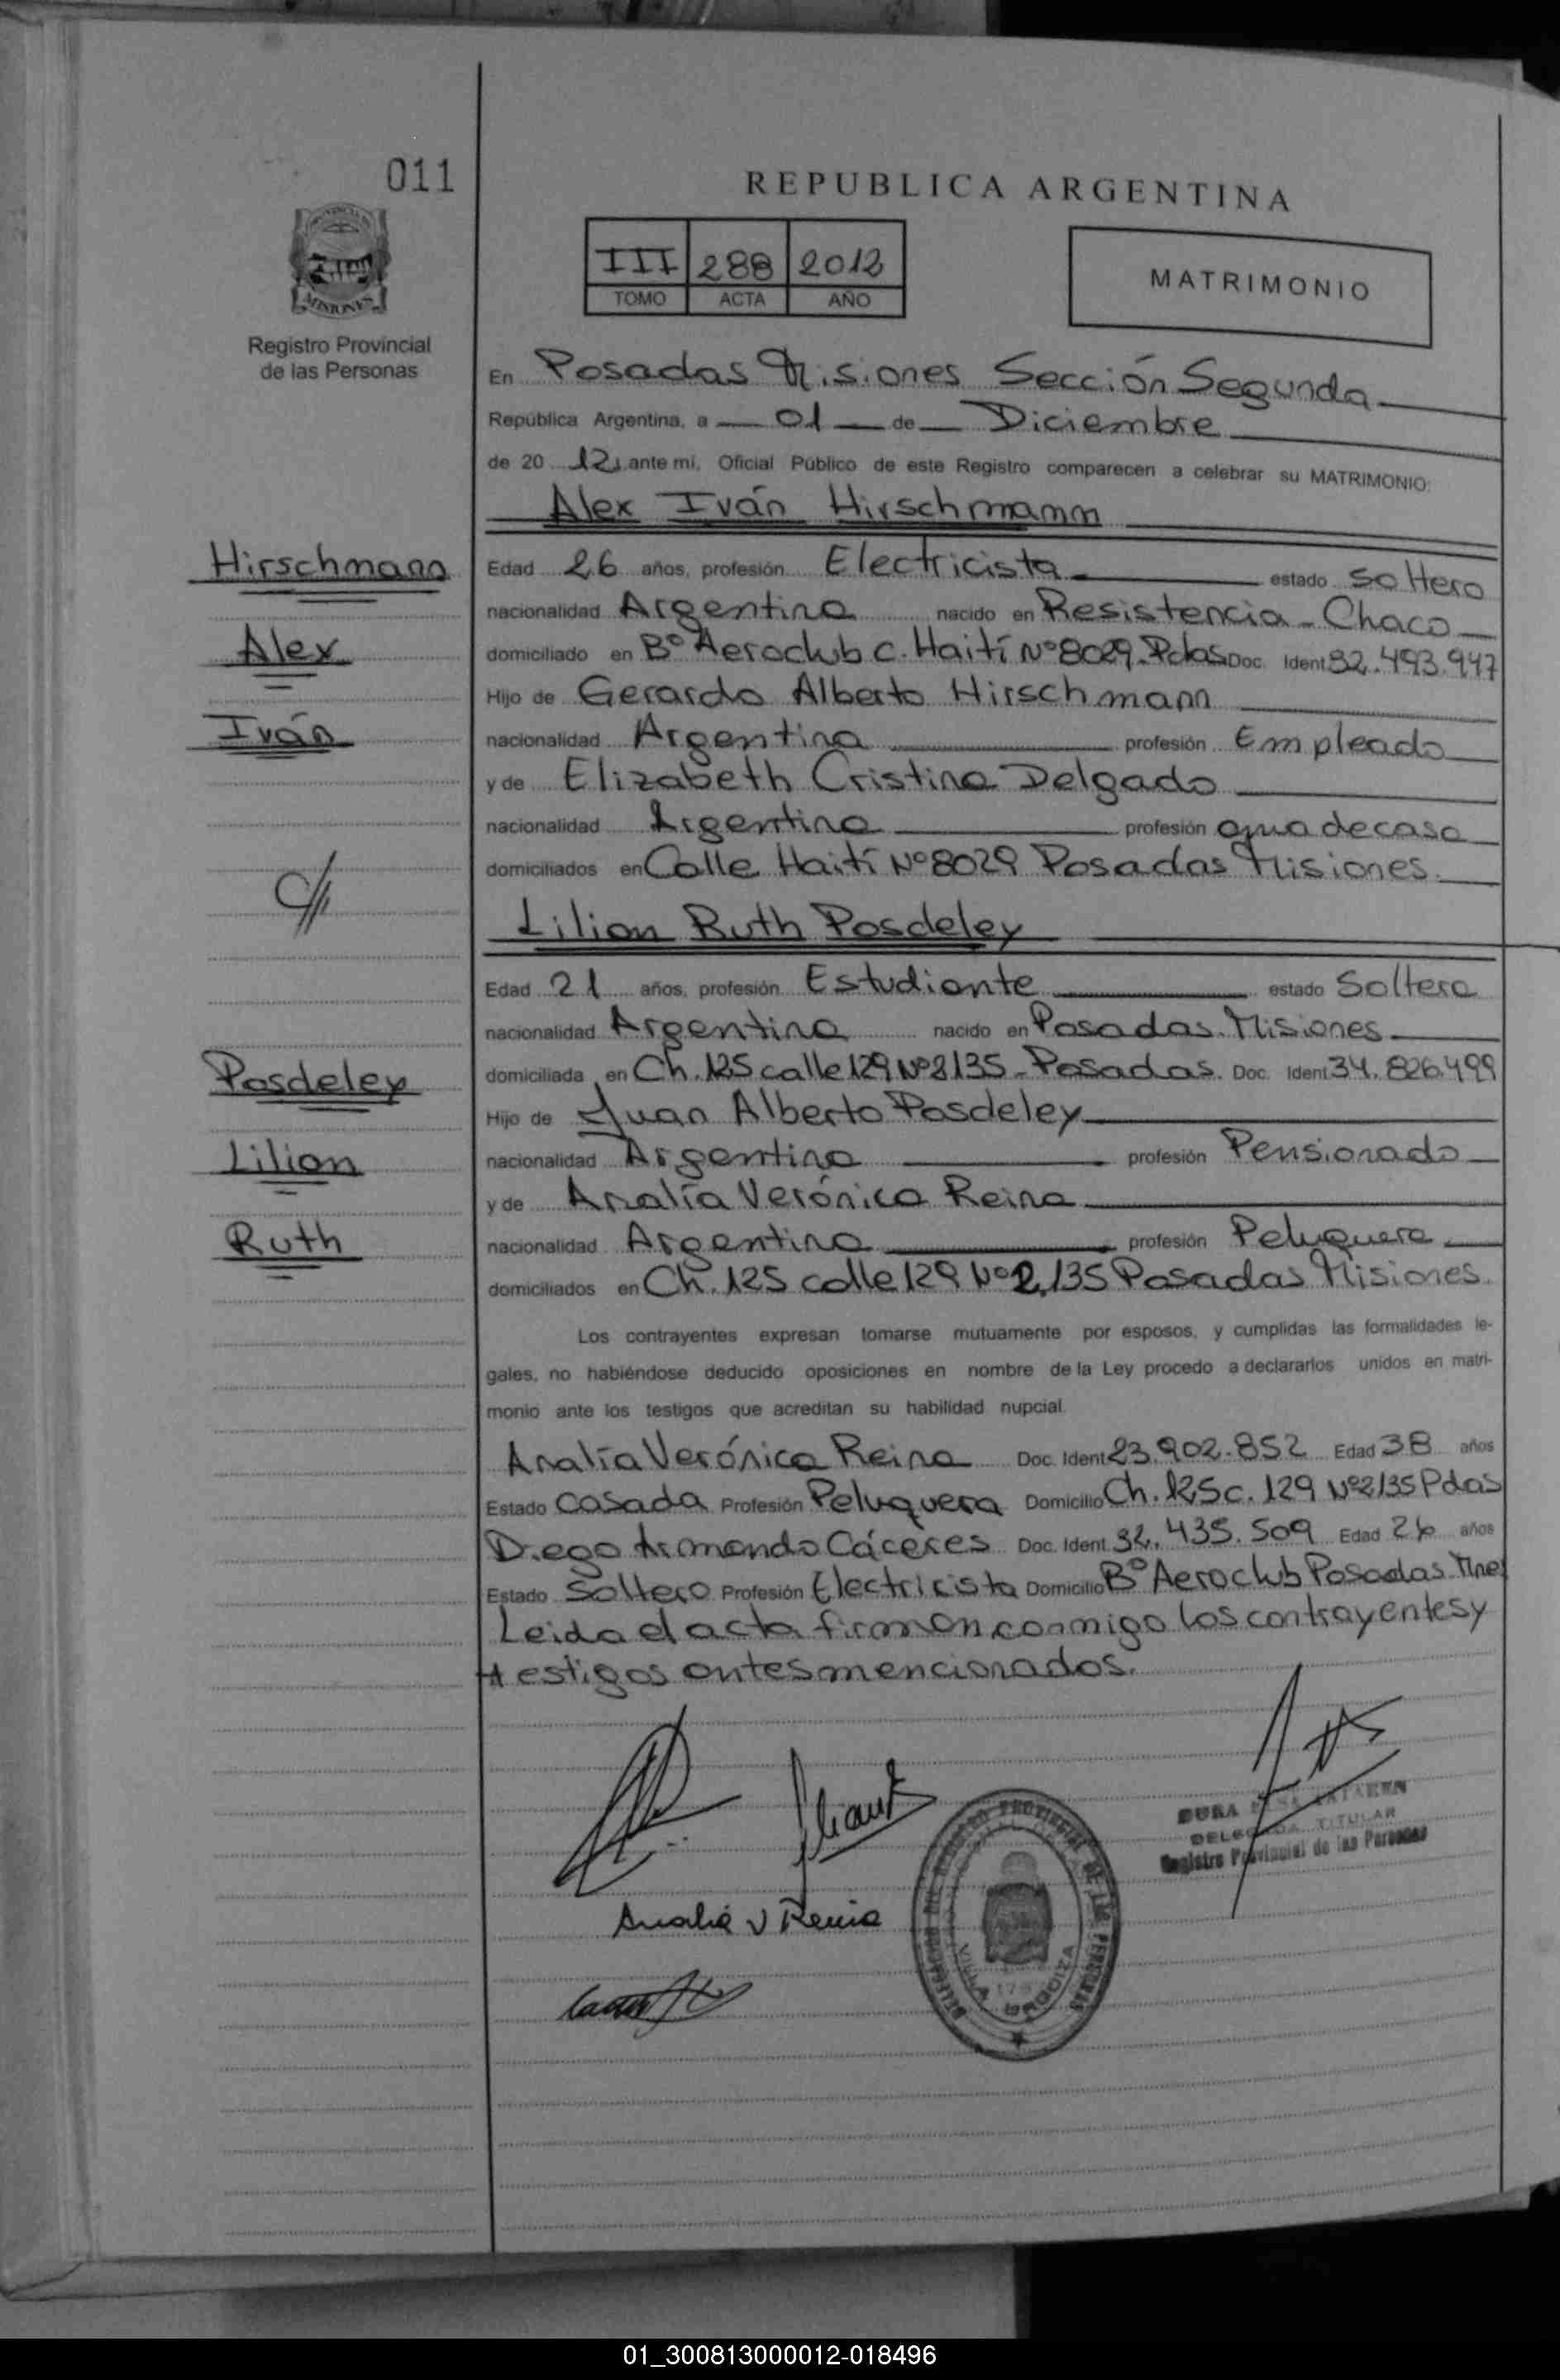 011
REPUBLICA ARGENTINA
III 288 2012
TOMO ACTA AÑO
MATRIMONIO
MISIONES
Registro Provincial
de las Personas
En Posadas Misiones Sección Segunda
República Argentina, a 01 de Diciembre
de 20 12, ante mi, Oficial Público de este Registro comparecen a celebrar su MATRIMONIO:
Alex Iván Hirschmann
Hirschmann
Alex
Iván
Edad 26 años, profesión Electricista estado soltero
nacionalidad Argentina nacido en Resistencia - Chaco
domiciliado en Bº Aeroclub C. Haití Nº 8029. Pdas Doc. Ident 32.493.947
Hijo de Gerardo Alberto Hirschmann
nacionalidad Argentina profesión Empleado
y de Elizabeth Cristina Delgado
nacionalidad Argentina profesión ama de casa
domiciliados en Calle Haití Nº 8029 Posadas Misiones.
Lilian Ruth Posdeley
Posdeley
Lilian
Ruth
Edad 21 años, profesión Estudiante estado Soltera
nacionalidad Argentina nacido en Posadas. Misiones
domiciliada en Ch. 125 calle 129 Nº 2135 - Posadas. Doc. Ident 34.826.499
Hijo de Juan Alberto Posdeley
nacionalidad Argentina profesión Pensionado
y de Analía Verónica Reina
nacionalidad Argentina profesión Peluquera
domiciliados en Ch. 125 calle 129 Nº 2135 Posadas Misiones.
Los contrayentes expresan tomarse mutuamente por esposos, y cumplidas las formalidades le-
gales, no habiéndose deducido oposiciones en nombre de la Ley procedo a declararlos unidos en matri-
monio ante los testigos que acreditan su habilidad nupcial.
Analía Verónica Reina Doc. Ident 23.902.852 Edad 38 años
Estado Casada Profesión Peluquera Domicilio Ch. 125 c. 129 Nº 2135 Pdas
Diego Armando Cáceres Doc. Ident. 32.435.509 Edad 26 años
Estado Soltero Profesión Electricista Domicilio Bº Aeroclub Posadas Mnes
Leida el acta firman conmigo los contrayentes y
testigos antes mencionados.
DELEGADA TITULAR
Registro Provincial de las Personas
Analia V Reina
REGISTRO PROVINCIAL DE LAS PERSONAS
VILLA URQUIZA
01_300813000012-018496